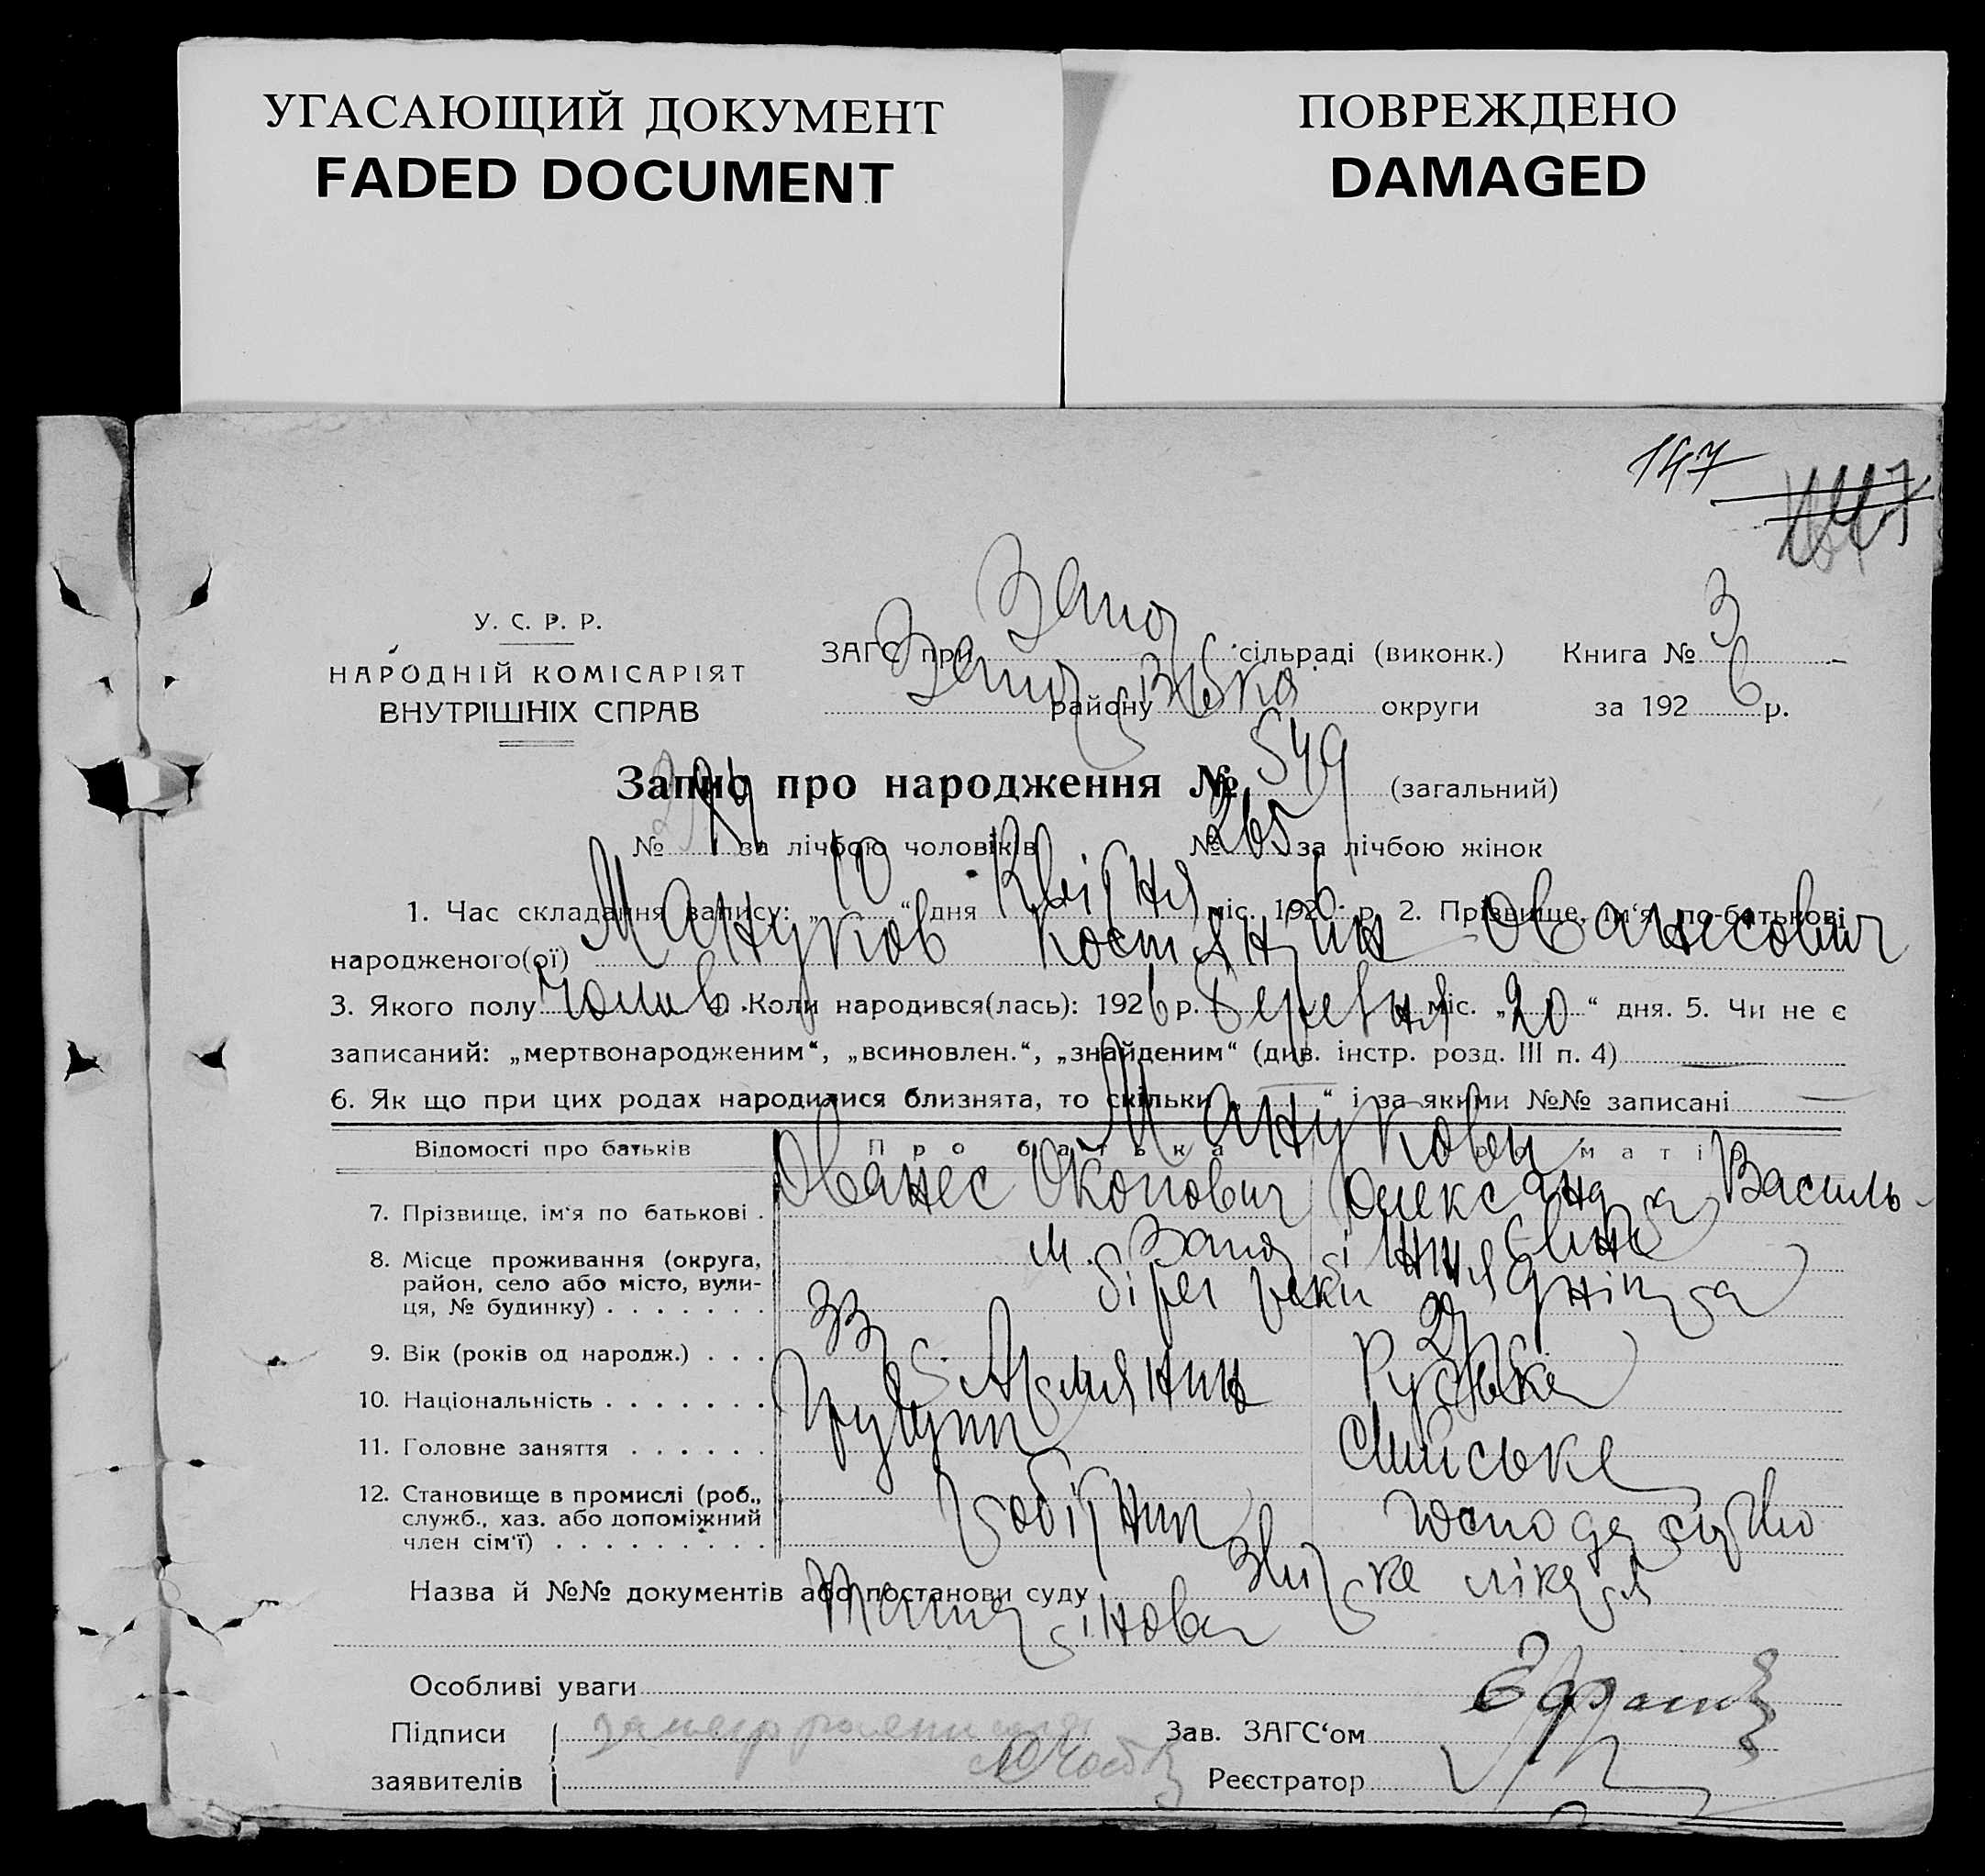 УГАСАЮЩИЙ ДОКУМЕНТ
FADED DOCUMENT
ПОВРЕЖДЕНО
DAMAGED
147
У. С. Р. Р.
НАРОДНІЙ КОМІСАРІЯТ
ВНУТРІШНІХ СПРАВ
ЗАГС при Запор сільраді (виконк.) Книга № 3
району округи за 1926 р.
Запис про народження № 549 (загальний)
№ 284 за лічбою чоловіків № 265 за лічбою жінок
1. Час складання запису: „10“ дня Квітня міс. 1926 р. 2. Прізвище, ім'я, по-батькові
народженого(ої) Мануков Костянтин Ованесович
3. Якого полу Чолов. 4. Коли народився(лась): 1926 р. Березня міс. „20“ дня. 5. Чи не є
записаний: „мертвонародженим“, „всиновлен.“, „знайденим“ (див. інстр. розд. III п. 4)
6. Як що при цих родах народилися близнята, то скільки „ “ і за якими №№ записані
Відомості про батьків Про батька Про матір
Манукови
7. Прізвище, ім'я по батькові . Ованес Околович Олександра Василь-
8. Місце проживання (округа, район, село або місто, вулиця, № будинку) . . . . . . . м. Запор
берег реки Дніпра
9. Вік (років од народж.) . . . 33
10. Національність . . . . . . . Армянин Руська
11. Головне заняття . . . . . .
12. Становище в промислі (роб., служб., хаз. або допоміжний член сім'ї) . . . . . . . . . робітник господарство
Назва й №№ документів або постанови суду лікаря
Особливі уваги
Підписи
заявителів
Зав. ЗАГС'ом
Реєстратор